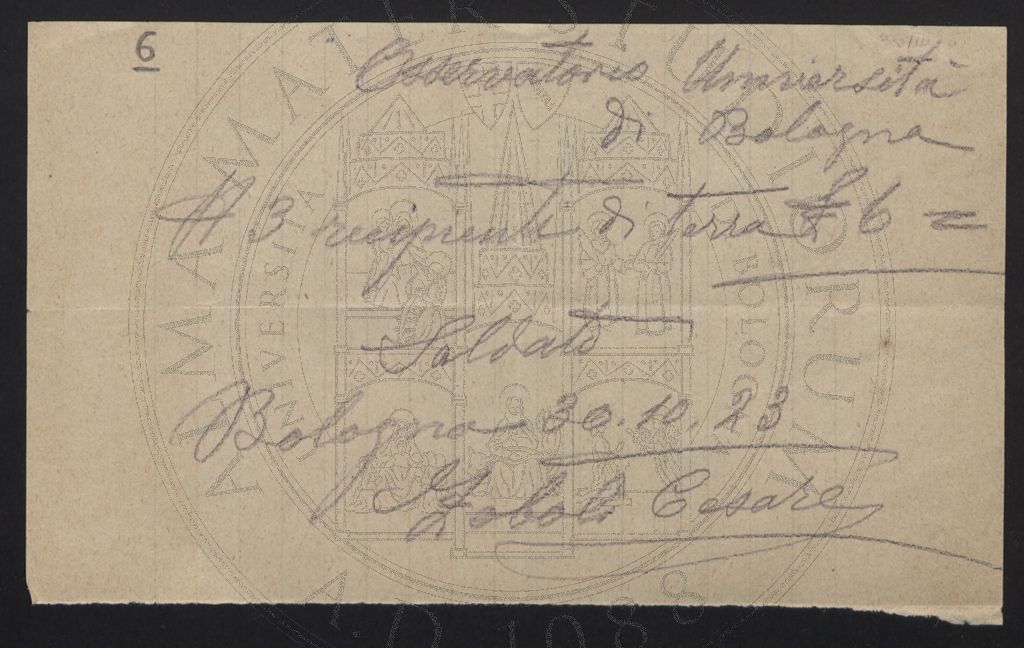 6
Osservatorio Università
di Bologna
N 3 recipienti di terra £ 6 =
Saldato
Bologna 30.10.23
Zoboli Cesare
ALMA MATER STUDIORUM
UNIVERSITÀ BOLOGNA
A.D. 1088